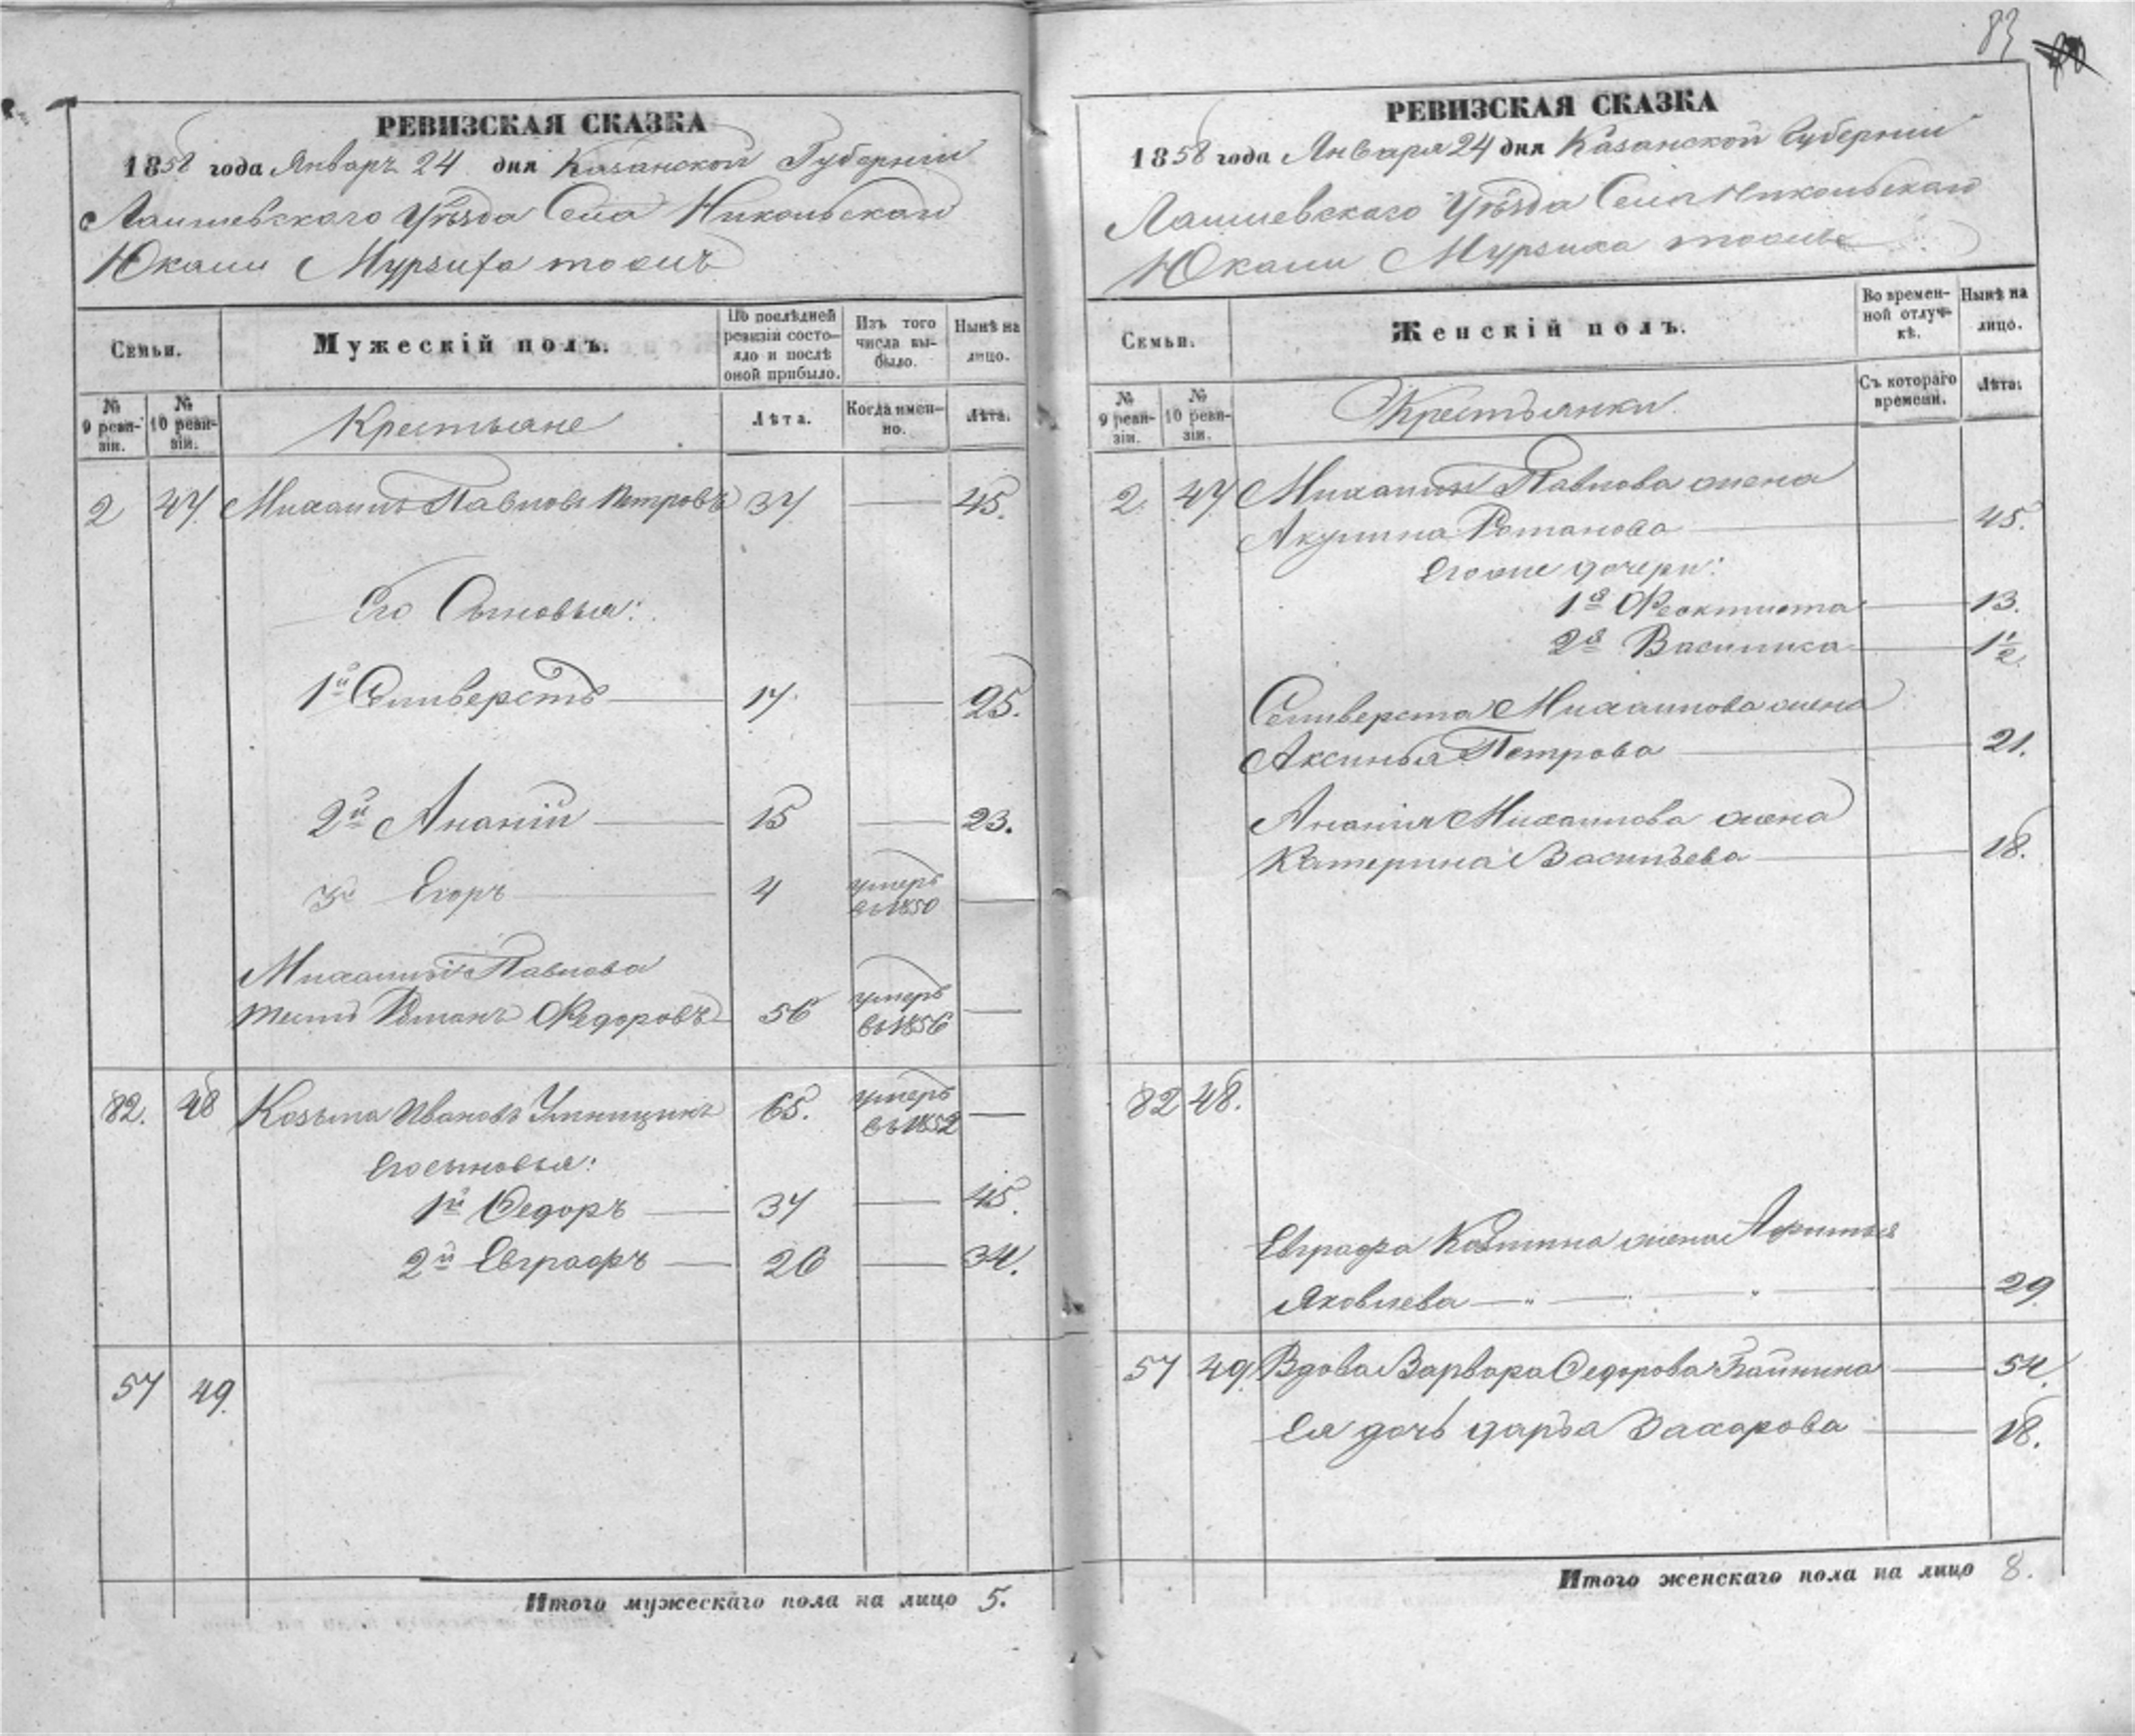 83
РЕВИЗСКАЯ СКАЗКА
1858 года Январъ 24 дня Казанской Губерніи
Лаишевскаго Уѣзда Села Никольскаго
Юкачи Мурзиха тожъ
Семьи.
Мужескій полъ.
По послѣдней ревизіи состояло и послѣ оной прибыло.
Изъ того числа выбыло.
Нынѣ на лицо.
№ 9 ревизіи.
№ 10 ревизіи.
Крестьяне
Лѣта.
Когда именно.
Лѣта.
2 47 Михаилъ Павловъ Петровъ 37 — 45.
Его Сыновья:
1й Селиверстъ — 17. — 25.
2й Ананій — 15 — 23.
3й Егоръ — 4 умеръ въ 1850 —
Михаилы Павлова
тесть Романъ Федоровъ 56 умеръ въ 1856 —
82. 48 Козьма Ивановъ 65. умеръ въ 1852 —
Его сыновья:
1й Федоръ — 37 — 45.
2й Евграфъ — 26 — 34.
57 49.
Итого мужескаго пола на лицо 5.
РЕВИЗСКАЯ СКАЗКА
1858 года Января 24 дня Казанской Губерніи
Лаишевскаго Уѣзда Села Никольскаго
Юкачи Мурзиха тожъ
Семьи.
Женскій полъ.
Во временной отлучкѣ.
Нынѣ на лицо.
№ 9 ревизіи.
№ 10 ревизіи.
Крестьянки
Съ котораго времени.
Лѣта.
2. 47 Михаилы Павлова жена
Акулина Романова — 45.
Его же дочери:
1я Феоктиста — 13.
2я Василиса — 1½
Селиверста Михаилова жена
Аксинья Петрова — 21.
Ананія Михаилова жена
Катерина Васильева — 18.
82 48.
Евграфа Козмина жена Афимья
Яковлева — 29
57 49. Вдова Варвара Федорова Байкина — 54.
Ея дочь Дарья Захарова — 18.
Итого женскаго пола на лицо 8.